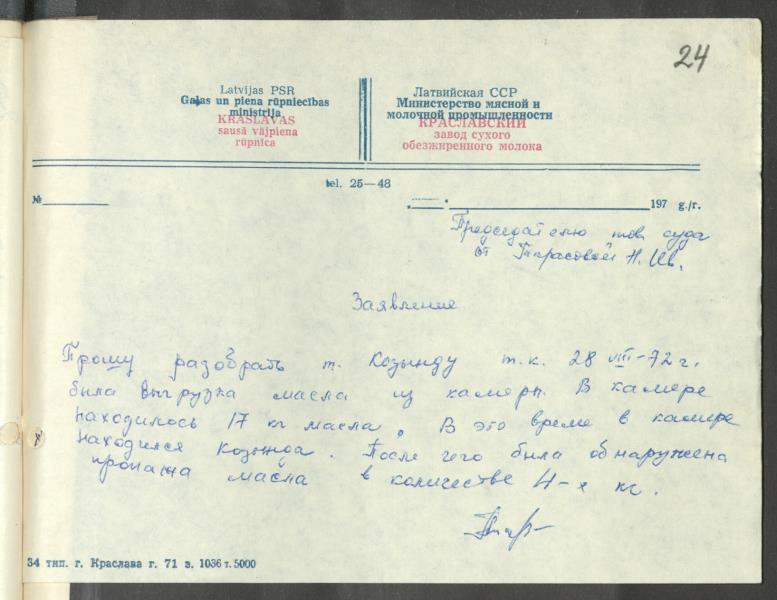 24
Latvijas PSR
Gaļas un piena rūpniecības
ministrija
KRASLAVAS
sausā vājpiena
rūpnīca
Латвийская ССР
Министерство мясной и
молочной промышленности
КРАСЛАВСКИЙ
завод сухого
обезжиренного молока
tel. 25—48
№
197 g./г.
Председателю тов. суда
от Тарасовой Н. Ив.
Заявление
Прошу разобрать т. Козынду т.к. 28 VIII-72 г.
была выгрузка масла из камеры. В камере
находилось 17 кг масла, В это време в камере
находился Козында. После чего была обнаружена
пропажа масла в количестве 4-х кг.
34 тип. г. Краслава г. 71 з. 1036 т. 5000